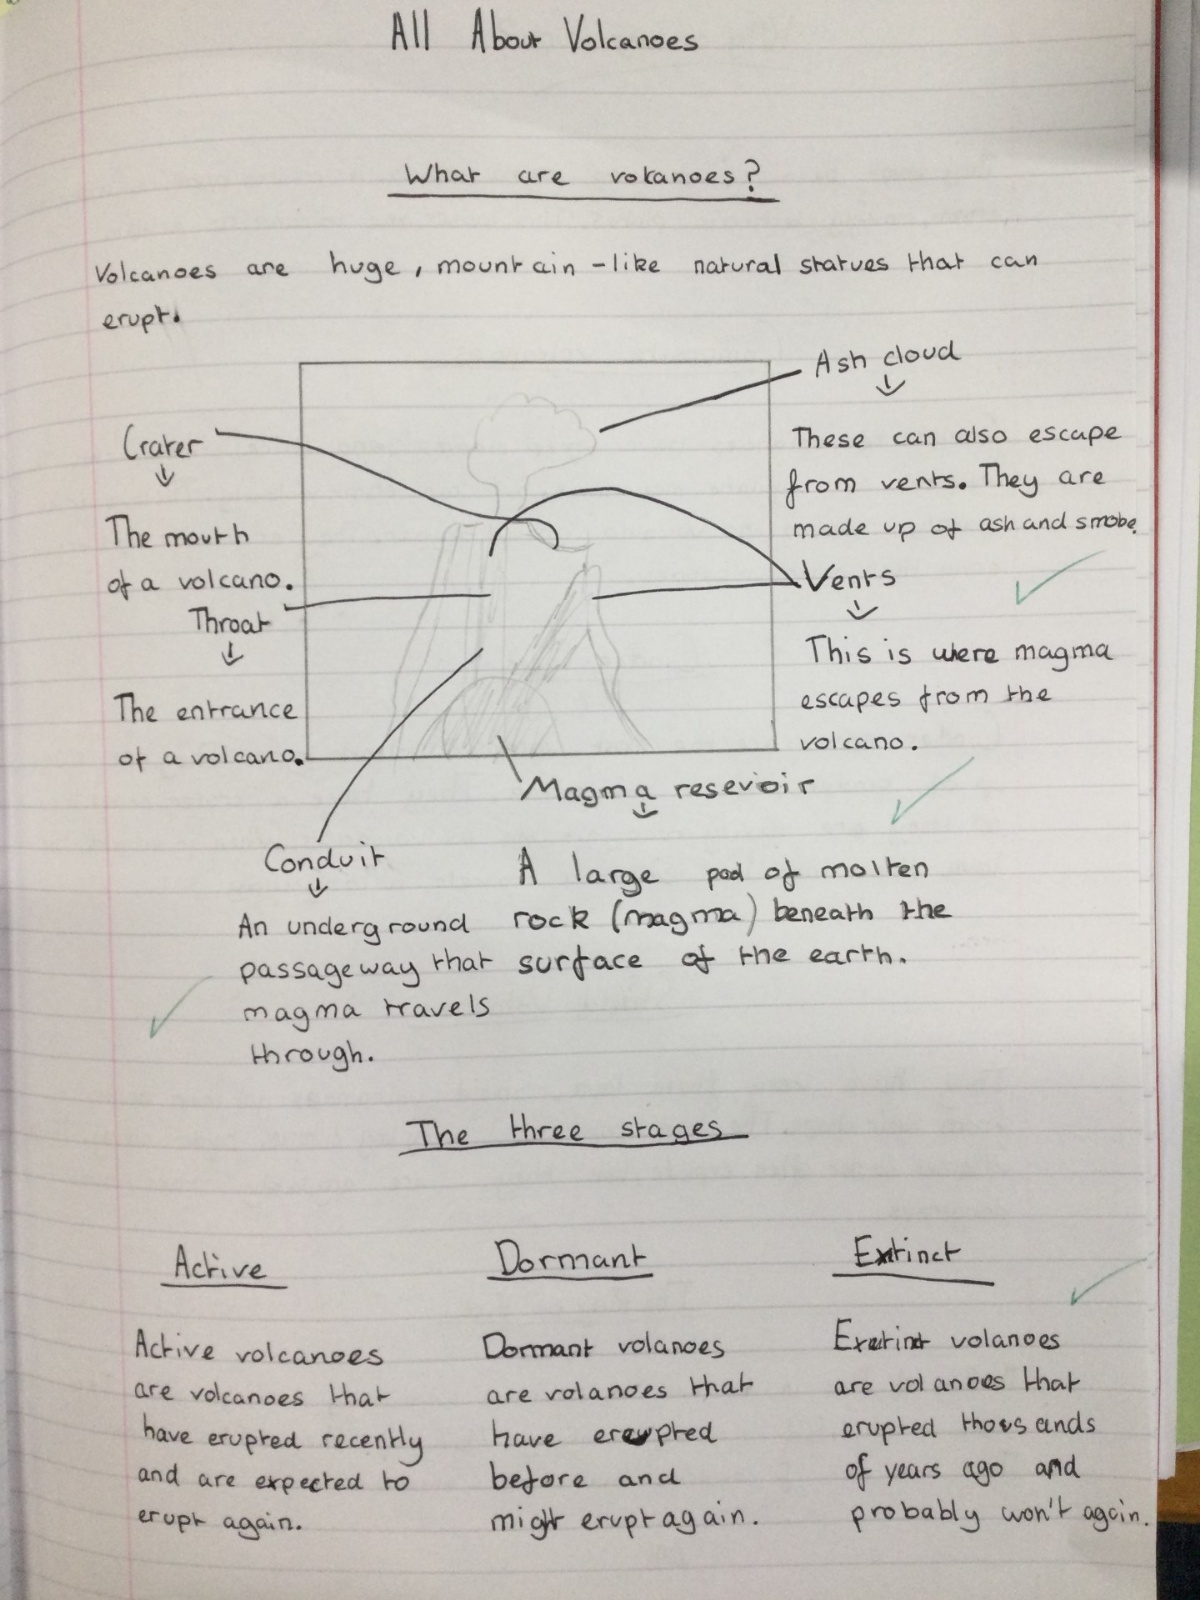 All About Volcanoes
What are volcanoes?
Volcanoes are huge, mountain-like natural statues that can
erupt.
Ash cloud
These can also escape
from vents. They are
made up of ash and smoke.
Crater
The mouth
of a volcano.
Throat
The entrance
of a volcano.
Vents
This is were magma
escapes from the
volcano.
Magma resevoir
A large pool of molten
rock (magma) beneath the
surface of the earth.
Conduit
An underground
passageway that
magma travels
through.
The three stages
Active
Active volcanoes
are volcanoes that
have erupted recently
and are expected to
erupt again.
Dormant
Dormant volanoes
are volanoes that
have erupted
before and
might erupt again.
Extinct
Extinct volanoes
are volanoes that
erupted thousands
of years ago and
probably won't again.